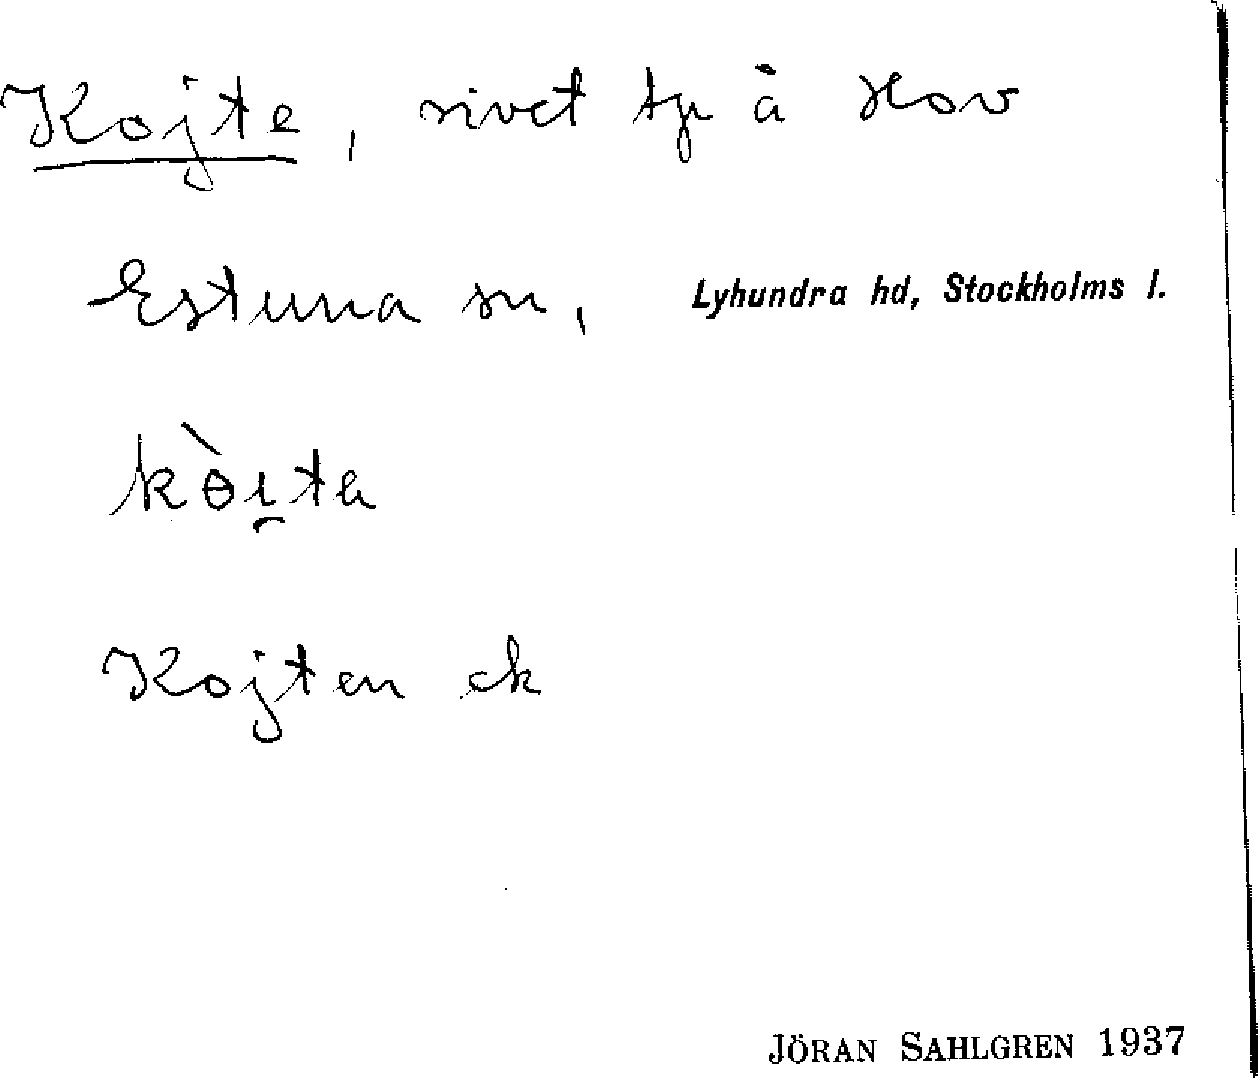 Kojte, rivet tp å Hov
Estuna sn, Lyhundra hd, Stockholms l.
kɵ̀ı̯ta
Kojten ek
JÖRAN SAHLGREN 1937